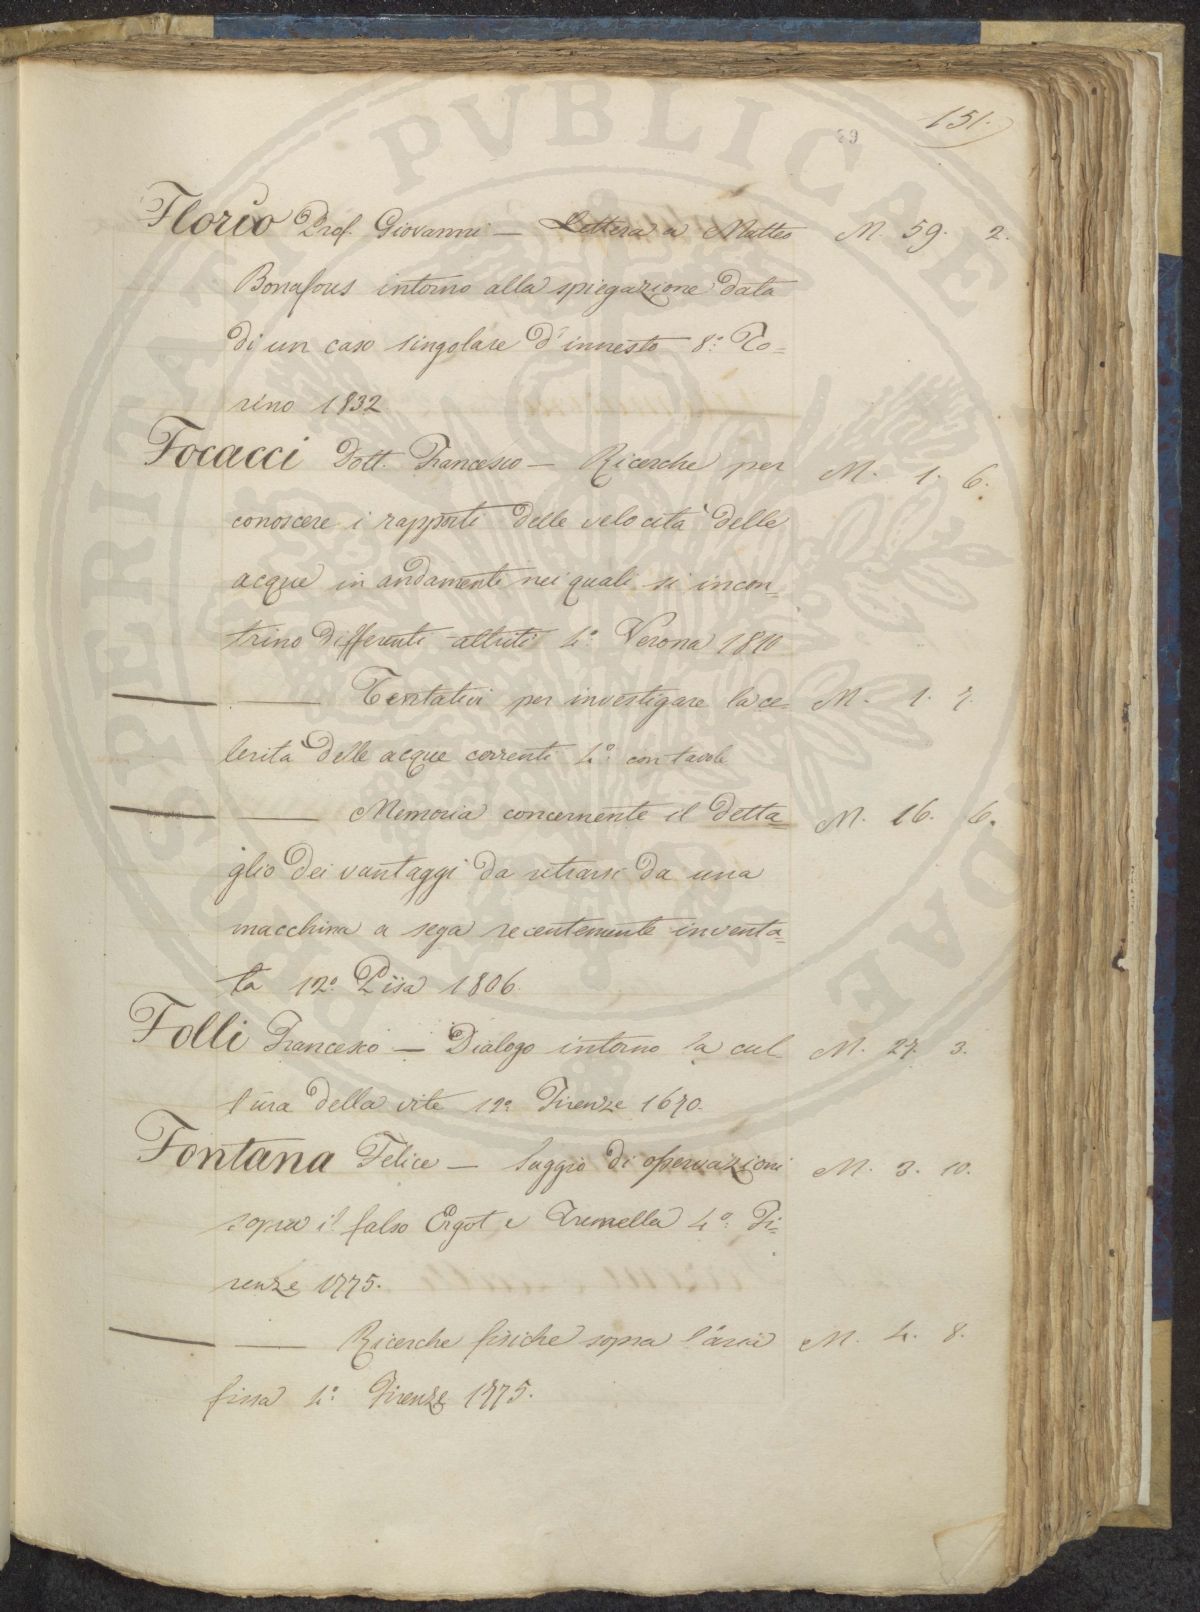 151.
PROSPERITATI PVBLICAE
Florio Prof. Giovanni — Lettera a Matteo M. 59. 2.
Bonafous intorno alla spiegazione data
di un caso singolare d'innesto 8.° To=
rino 1832
Focacci Dott. Francesco — Ricerche per M. 1. 6.
conoscere i rapporti delle velocità delle
acque in andamenti nei quali si incon=
trino differenti attriti 4.° Verona 1810
— — Tentativi per investigare la ce= M. 1. 7.
lerità delle acque correnti 4.° con tavole
— — Memoria concernente il detta= M. 16. 6.
glio dei vantaggi da ritrarsi da una
macchina a sega recentemente inventa=
ta 12.° Pisa 1806.
Folli Francesco — Dialogo intorno la cul M. 27. 3.
tura della vite 12.° Firenze 1670.
Fontana Felice — Saggio di osservazioni M. 3. 10.
sopra il falso Ergot e Tremella 4.° Fi=
renze 1775.
— — Ricerche fisiche sopra l'aria M. 4. 8.
fissa 4.° Firenze 1775.